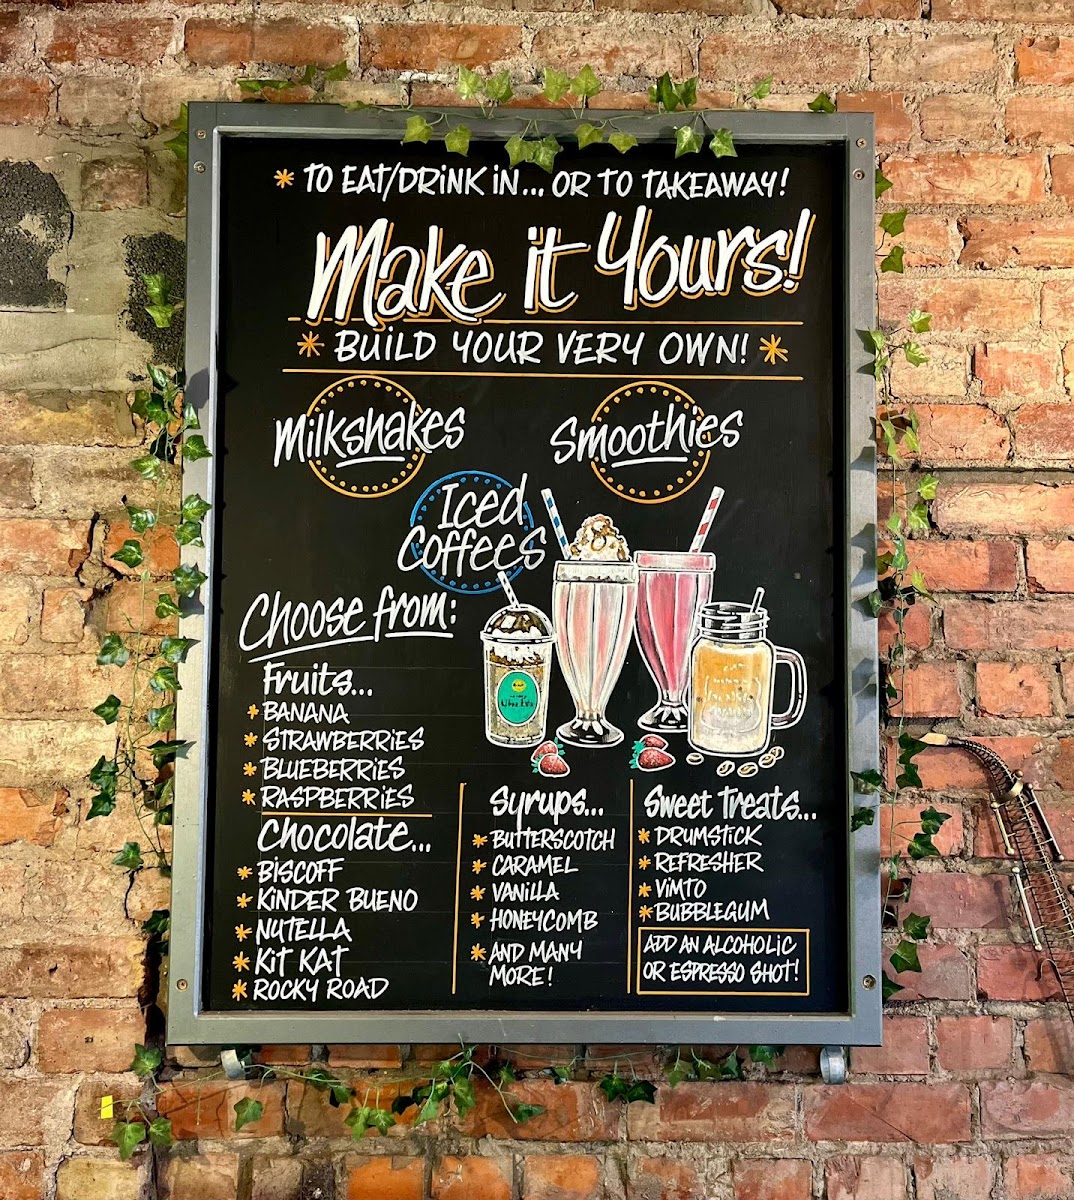 * TO EAT/DRINK IN... OR TO TAKEAWAY!
Make it Yours!
* BUILD YOUR VERY OWN! *
Milkshakes
Smoothies
Iced
Coffees
Choose from:
Fruits...
* BANANA
* STRAWBERRIES
* BLUEBERRIES
* RASPBERRIES
Chocolate...
* BISCOFF
* KINDER BUENO
* NUTELLA
* KIT KAT
* ROCKY ROAD
Syrups...
* BUTTERSCOTCH
* CARAMEL
* VANILLA
* HONEYCOMB
* AND MANY
MORE!
Sweet Treats...
* DRUMSTICK
* REFRESHER
* VIMTO
* BUBBLEGUM
ADD AN ALCOHOLIC
OR ESPRESSO SHOT!